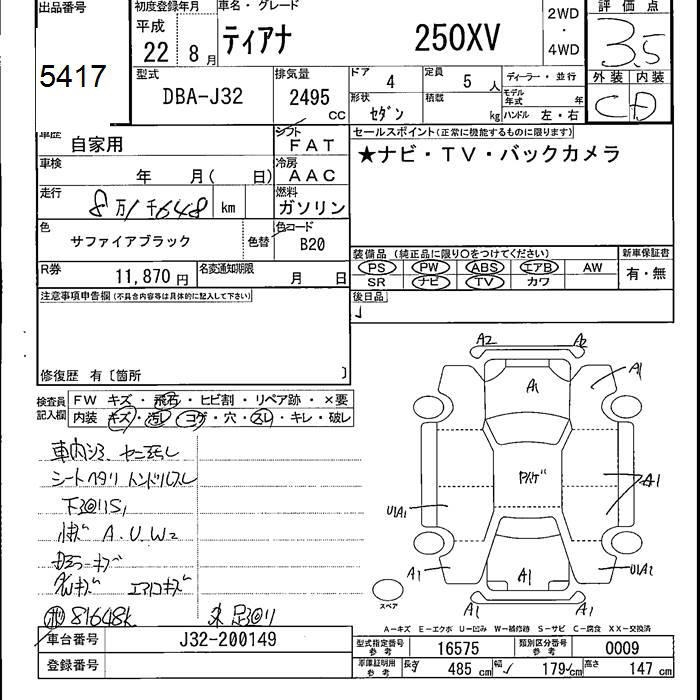 出品番号
5417
初度登録年月
平成
22 8 月
車名・グレード
ティアナ 250XV
2WD
・
4WD
評価点
3.5
外装 内装
C D
型式
DBA-J32
排気量
2495 CC
ドア 4
定員 5 人
ディーラー・並行
形状 セダン
積載 kg
モデル年式 年
ハンドル 左・右
車歴 自家用
シフト FAT
車検 年 月( 日)
冷房 AAC
走行 8万1千648 km
燃料 ガソリン
色 サファイアブラック
色替
色コード B20
R券 11,870 円
名変通知期限 月 日
セールスポイント(正常に機能するものに限ります)
★ナビ・TV・バックカメラ
装備品 (純正品に限り○をつけてください)
PS PW ABS エアB AW
SR ナビ TV カワ
新車保証書
有・無
後日品
注意事項申告欄(不具合内容等は具体的に記入して下さい)
修復歴 有〔箇所 〕
検査員記入欄
FW キズ・飛石・ヒビ割・リペア跡・×要
内装 キズ・汚レ・コゲ・穴・スレ・キレ・破レ
A.U.W2
81648k
A2 A2
A1 A1
A1
U1A1
A1 A1 U1A2
スペア
A-キズ E-エクボ U-凹み W-補修跡 S-サビ C-腐食 XX-交換済
車台番号 J32-200149
登録番号
型式指定番号 参考 16575
類別区分番号 参考 0009
車庫証明用 参考
長さ 485 cm
幅 179 cm
高さ 147 cm